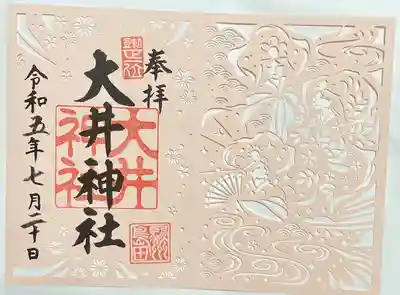 奉拝
大井神社
大井
神社
島田
令和五年七月二十日